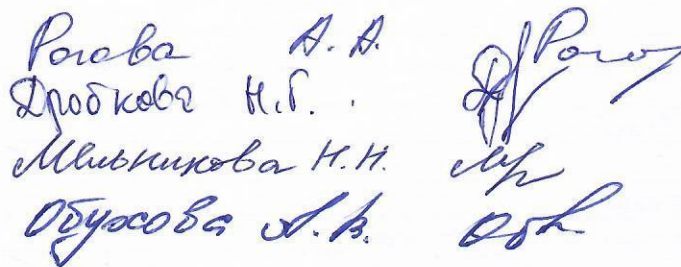 Рогова А. А. Рого
Дробкова Н.Г.
Мельникова Н.Н.
Обухова А. В.